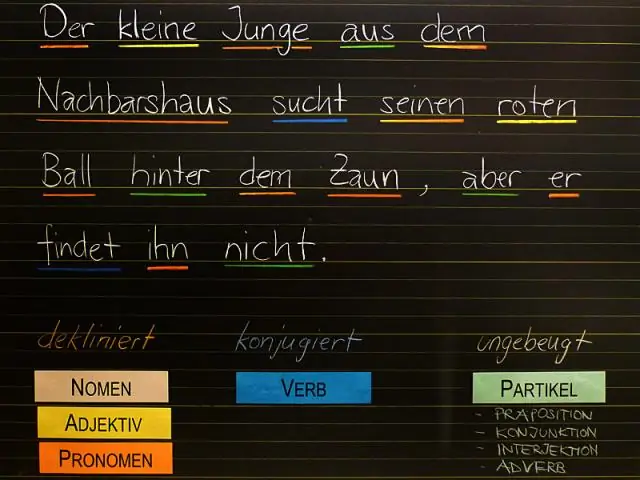 Der kleine Junge aus dem
Nachbarshaus sucht seinen roten
Ball hinter dem Zaun, aber er
findet ihn nicht.
dekliniert konjugiert ungebeugt
NOMEN VERB PARTIKEL
ADJEKTIV
PRONOMEN
- PRÄPOSITION
- KONJUNKTION
- INTERJEKTION
- ADVERB